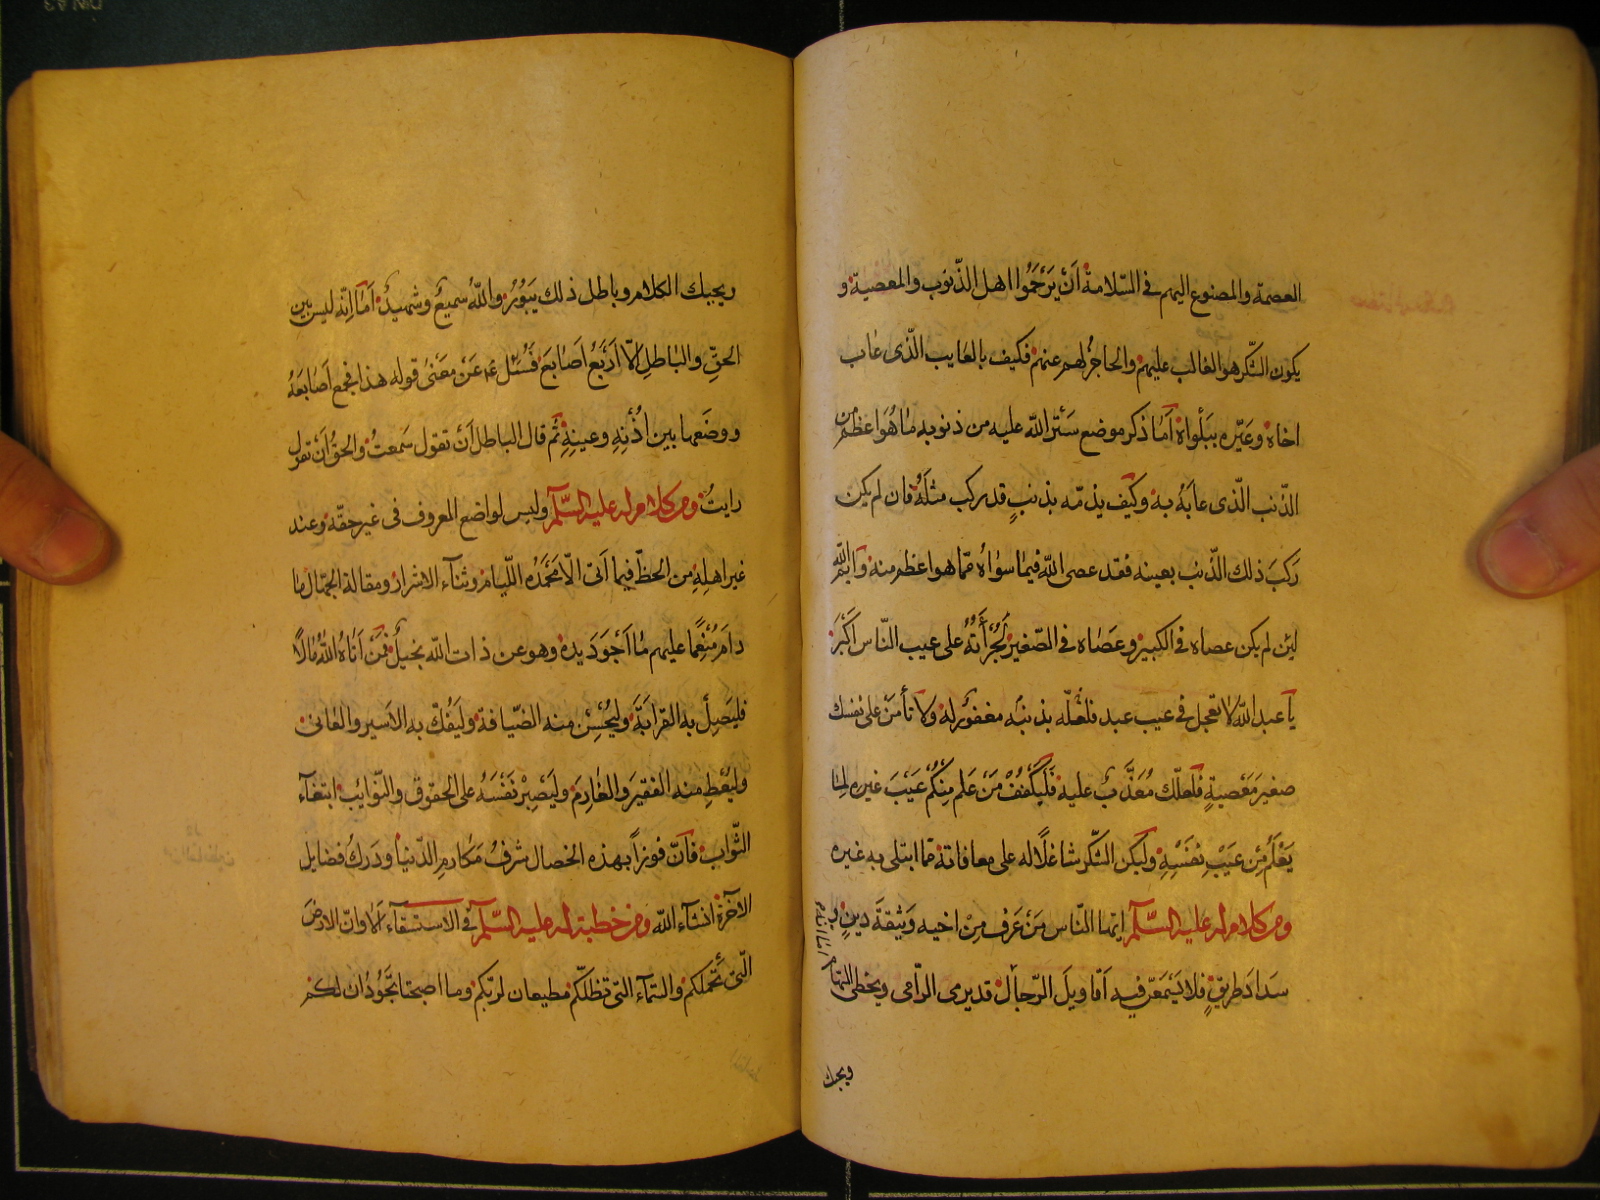 العصمة والمصنوع اليهم فى السّلامة أَنْ يَرْحَمُوا اهل الذّنوب والمعصية و
يكون الشّكر هو الغالب عليهم والحاجز لهم عنهم فكيف بالعايب الّذى عاب
اخاه وعيّره ببَلْواه اَمَا ذكر موضع سَتْر الله عليه من ذنوبه مَا هُوَ اعظم من
الذّنب الّذى عابَهُ به وكَيْف يذمّه بذنبٍ قد ركب مثلَهُ فان لم يكن
رَكبَ ذلك الذّنب بعينه فقد عصى الله فيمَا سوَاهُ ممّا هو اعظم منه وايم الله
لين لم يكن عصاه فى الكبير وعَصَاه فى الصّغير لَجُرْأَتُهُ على عيب النّاس اَكْبَرُ
يا عبد الله لا تعجل فى عيب عبد فلعلّه بذنبه مغفورٌ له ولا تأمَنْ على نفسك
صغيرَ مَعْصيةٍ فلعلّك مُعَذَّبٌ عليه فَلْيَكْفُفْ مَنْ عَلم مِنْكُمْ عَيْبَ غيره لِمَا
يَعْلَمُ مِنْ عَيْبِ نفْسِهِ وليَكن الشّكر شاغلًا له على معافاته مما ابتلى به غيره
ومن كلام له عليه السّلام ايّها النّاس مَنْ عَرف مِنْ اخيه وَثيقَةَ دينٍ و
سَدادَ طريقٍ فلا يَسْمَعَنّ فيه اَقاويلَ الرّجال اما انّه قد يرمى الرّامى ويخطى السّهام
ويحيك
ويحيك الكلام وباطل ذلك يَبُوْرُ واللهُ سميعٌ وشهيدٌ اَمَا اِنّه ليس بين
الحقِّ والباطلِ الّا اَرْبَعُ اَصَابعَ فَسُئل عَنْ مَعْنى قوله هذا فجمع اَصَابعَهُ
ووضَعها بين اُذُنِهِ وعينِهِ ثُم قال الباطل اَنْ تقول سَمعتُ والحقّ اَنْ تقول
رايتُ ومن كلام له عليه السّلام وليس لواضع المعروف فى غير حقّه وعند
غير اهلِهِ من الحظّ فيما اَتى الّا مَحْمَدَه اللّيام وثناء الاشرار ومقالة الجهّال مَا
دامَ مُنْعِمًا عليهم مَا اَجْوَدَ يدَه وهو عن ذات الله بخيلٌ فمَنْ اَتَاهُ اللهُ مَالًا
فليَصِلْ به القَرابَةَ وليُحْسِنْ منه الضّيافة وليَفُكّ به الاَسير والعانى
وليُعْطِ منه الفقيرَ والغَارِمَ وليَصْبِرْ نَفْسَهُ على الحقوق والنّوايب ابتغاء
الثّواب فاَنّ فوزاً بهذه الخصال شرفُ مَكارمِ الدّنيا ودَركُ فضايل
الآخرة انشاء الله ومن خطبة له عليه السّلام فى الاستسقاء اَلَا وانّ الارضَ
الّتى تَحملكم والسّماء التى تظلّكم مطيعان لربّكم وما اصبحتا تَجُودَان لكم